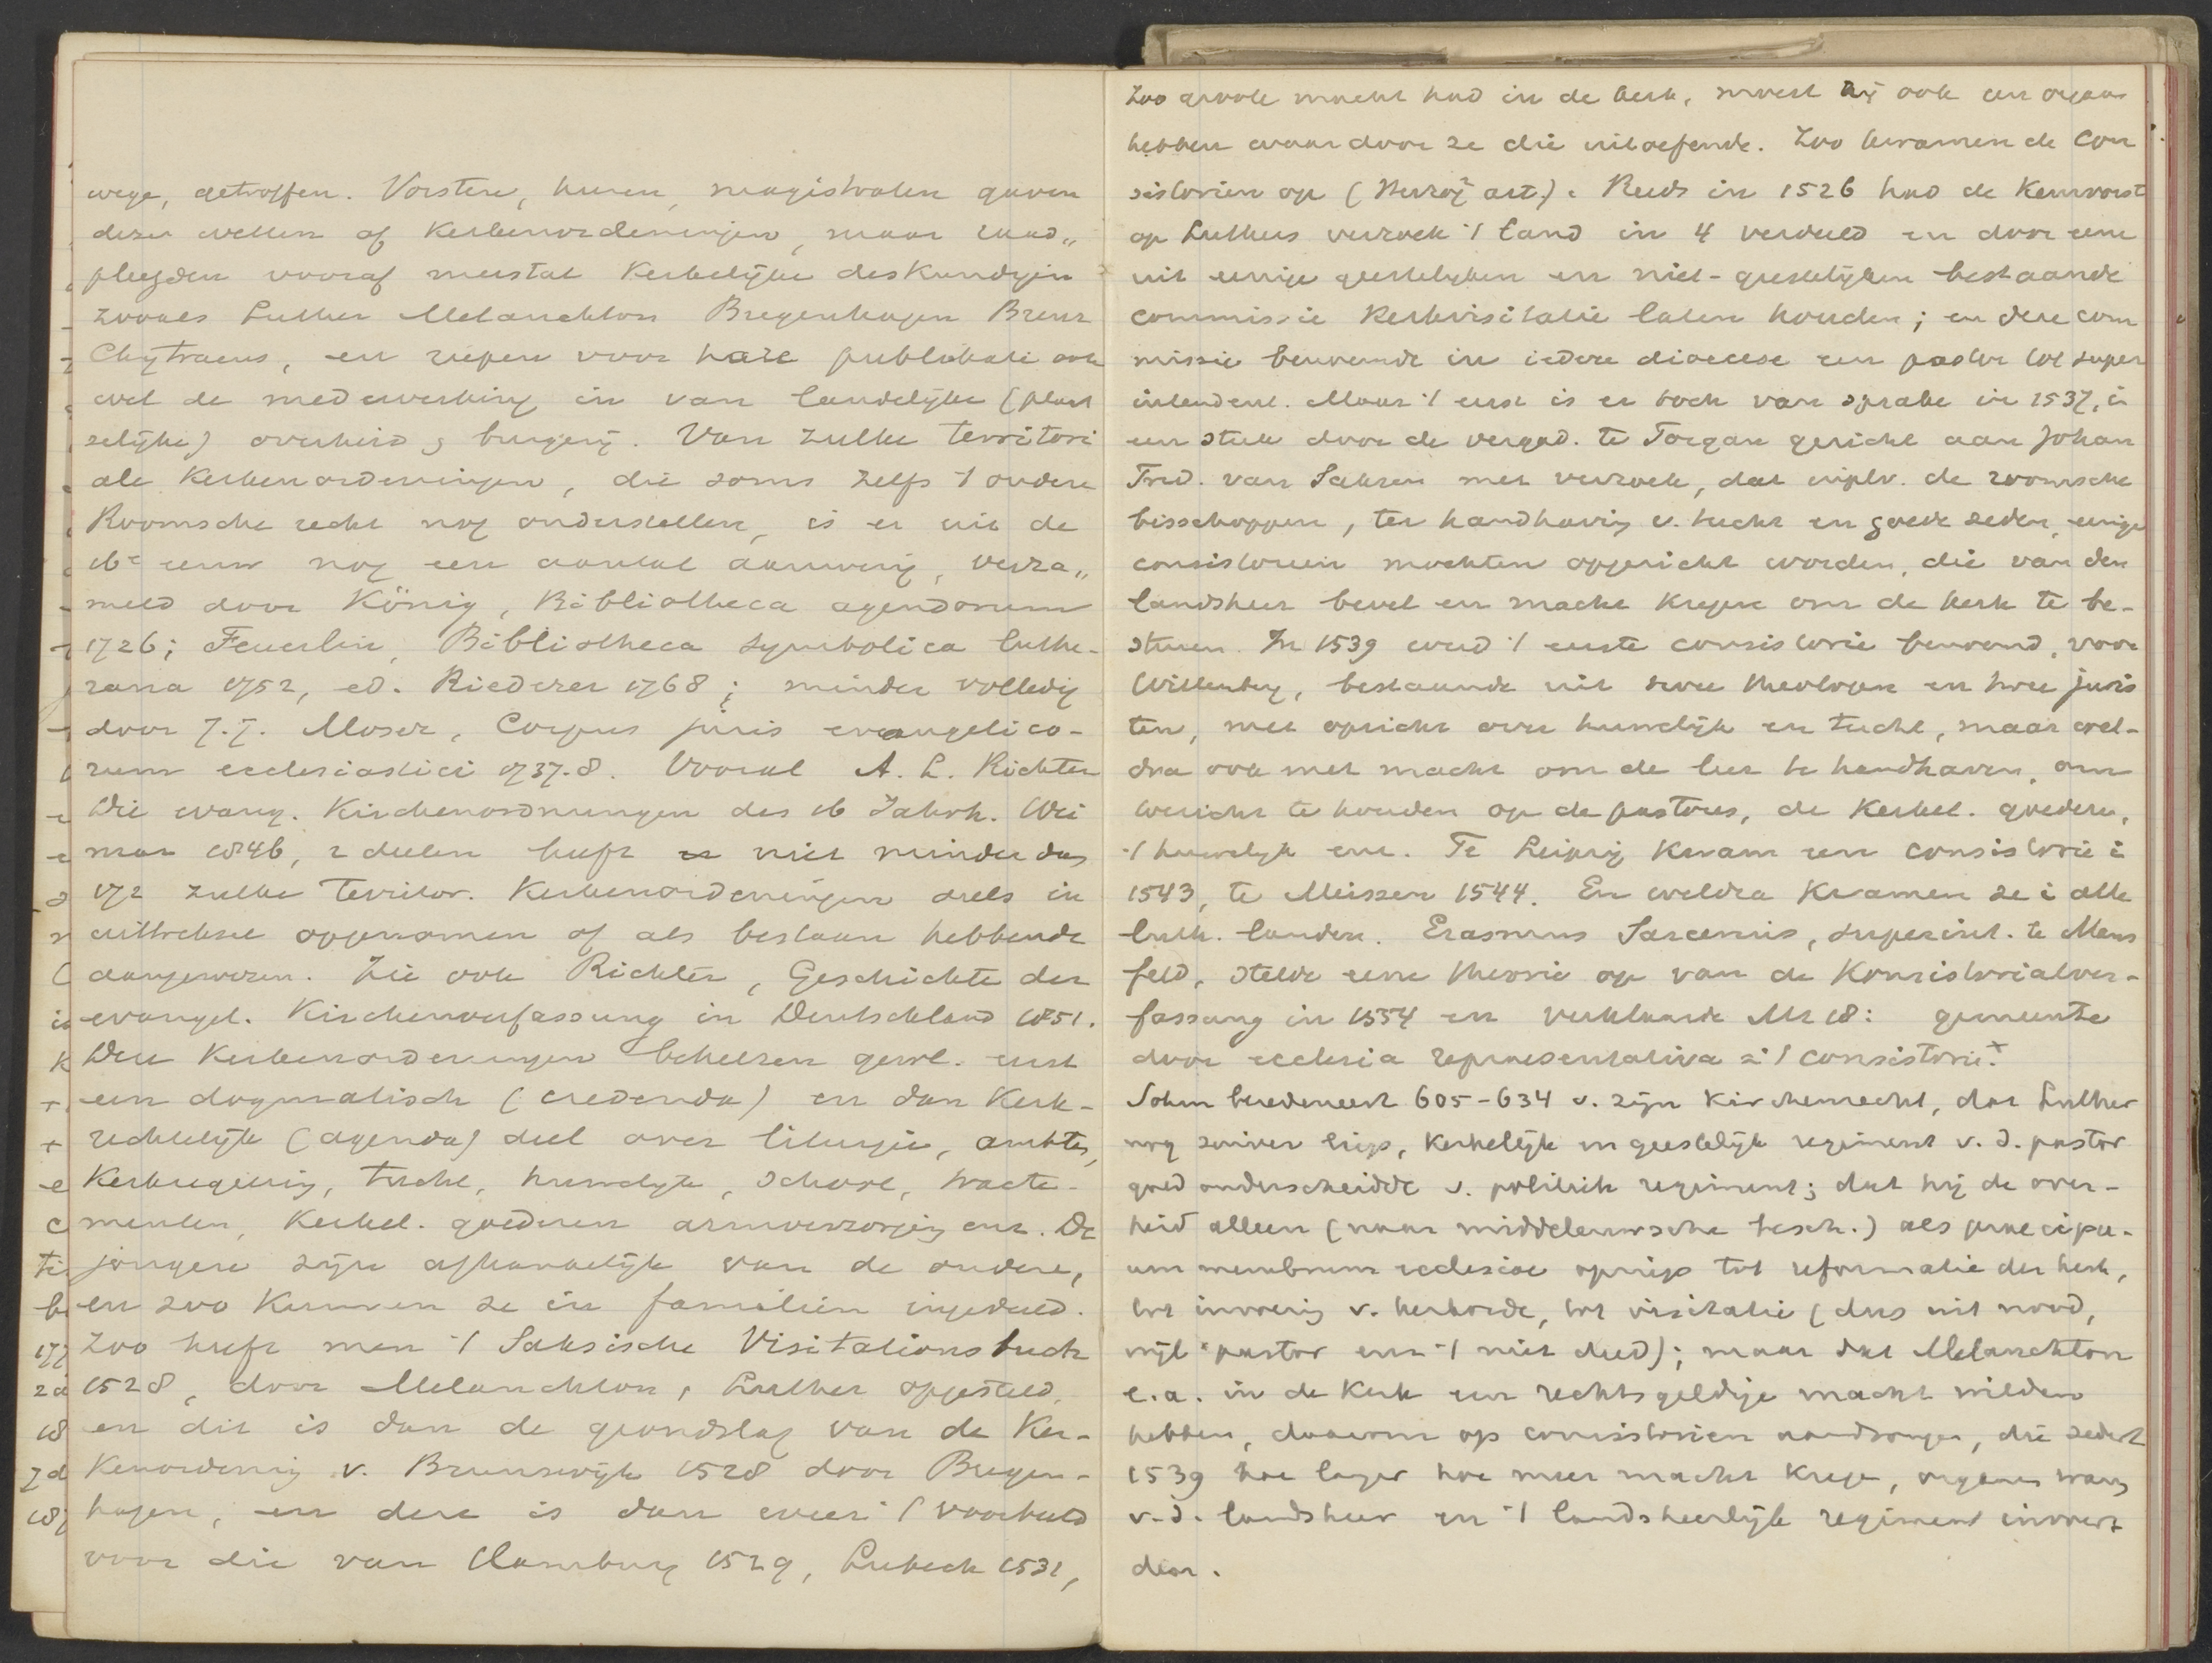 wege, getroffen. Vorsten, heeren, magistraten gaven
dezen wetten of Kerkenordeningen, maar raad„
pleegden vooraf meestal Kerkelijke deskundigen
zooals Luther Melanchton Bugenhagen Brenz
Chytraeus, en riepen voor hare publikatie ook
wel de medewerking in van landelijke (plaat
selijke) overheid & burgerij. Van zulke territori
ale Kerkenordeningen, die soms zelfs 't oudere
Roomsche recht nog onderstellen, is er uit de
16e eeuw nog een aantal aanwezig, verza„
meld door König, Bibliotheca agendorum
1726; Feuerlin, Bibliotheca symbolica luthe-
rana 1752, ed. Riederer 1768; minder volledig
door J.J. Moser, Corpus juris evangelico-
rum ecclesiastici 1737-8. Vooral A. L. Richter
Die evang. Kirchenordnungen des 16 Jahrh. Wei
mar 1846, 2 deelen heeft er niet minder dan
172 zulke territor. Kerkenordeningen deels in
uittreksel opgenomen of als bestaan hebbende
aangewezen. Zie ook Richter, Geschichte der
evangel. Kirchenverfassung in Deutschland 1851.
Deze Kerkenordeningen behelzen gewl. eerst
een dogmatisch (credenda) en dan Kerk-
rechtelijk (agenda) deel over liturgie, ambten,
Kerkregering, tucht, huwelijk, school, tracte-
menten, Kerkel. goederen armverzorging enz. De
jongere zijn afhankelijk van de oudere,
en zoo kunnen ze in familien ingedeeld.
Zoo heeft men 't Saksische Visitationsbuch
1528, door Melanchton, Luther opgesteld,
en dit is dan de grondslag van de Ker-
kenordening v. Brunswijk 1528 door Bugen-
hagen, en deze is dan weer 't voorbeeld
voor die van Hamburg 1529, Lubeck 1531,
Zoo groote macht had in de kerk, moest hij ook een orgaan
hebben waardoor ze die uitoefende. Zoo kwamen de Con
sistorien op (Herzog² art.). Reeds in 1526 had de Keurvorst
op Luthers verzoek 't land in 4 verdeeld en door eene
uit eenige geestelijken en niet-geestelijken bestaande
commissie Kerkvisitatie laten houden; en deze com
missie benoemde in iedere dioecese een pastor tot super
intendent. Maar 't eerst is er toch van sprake in 1537, in
een stuk door de vergad. te Torgau gericht aan Johan
Fred. van Saksen met verzoek, dat inplv. de roomsche
bisschoppen, ter handhaving v. tucht en goede zeden, eenige
consistorien mochten opgericht worden, die van den
landsheer bevel en macht kregen om de kerk te be-
sturen. In 1539 werd 't eerste consistorie benoemd, voor
Wittenberg, bestaande uit twee theologen en twee juris
ten, met opzicht over huwelijk en tucht, maar wel-
dra ook met macht om de leer te handhaven, om
toezicht te houden op de pastores, de Kerkel. goederen,
't huwelijk enz. Te Leipzig kwam een consistorie in
1543, te Meissen 1544. En weldra kwamen ze in alle
luth. landen. Erasmus Sarcerius, superint. te Mans
feld, stelde eene theorie op van de Konsistorialver-
fassung in 1554 en verklaarde Mt 18: gemeente
door ecclesia repraesentativa = 't consistorie. ×
Sohm beredeneert 605-634 v. zijn Kirchenrecht, dat Luther
nog zuiver liep, Kerkelijk en geestelijk regiment v. d. pastor
goed onderscheidde v. politiek regiment; dat hij de over-
heid alleen (naar middeleeuwsche besch.) als praecipu-
um membrum ecclesiae opriep tot reformatie der kerk,
tot invoering v. kerkorde, tot visitatie (dus uit nood,
wijl pastor enz 't niet deed); maar dat Melanchton
e.a. in de Kerk een rechtsgeldige macht wilden
hebben, daarom op consistorien aandrongen, die sedert
1539 hoe langer hoe meer macht kregen, organen waren
v.d. landsheer en 't landsheerlijk regiment invoer-
den.